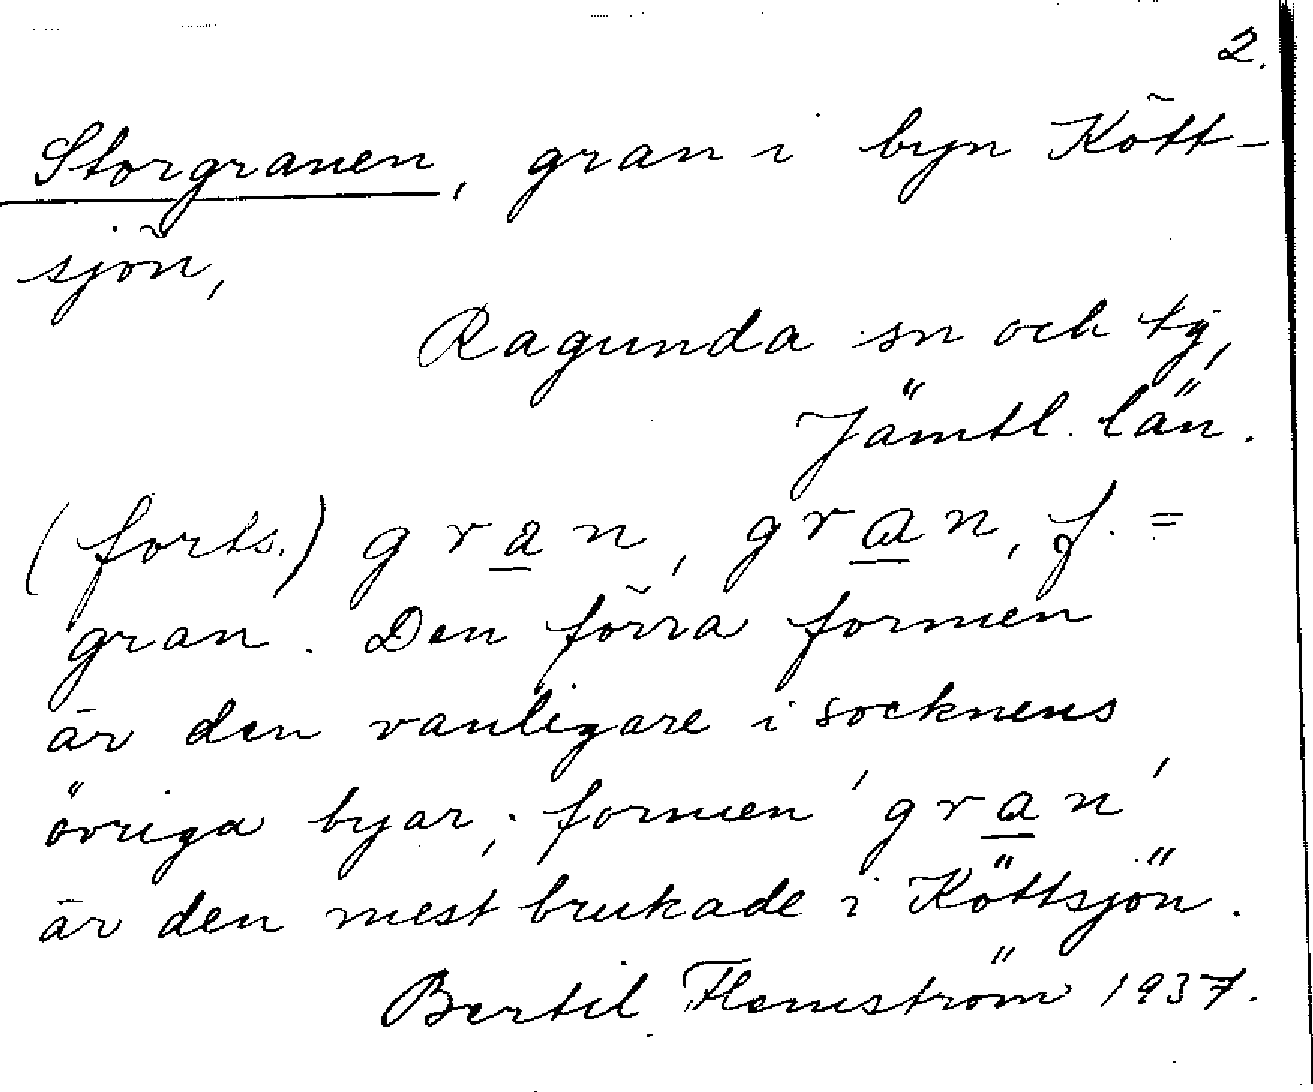 2.
Storgranen, gran i byn Kött-
sjön,
Ragunda sn och tg,
Jämtl. län.
(forts.) gran, gran, f. =
gran. Den förra formen
är den vanligare i socknens
övriga byar; formen 'gran'
är den mest brukade i Köttsjön.
Bertil Flemström 1937.